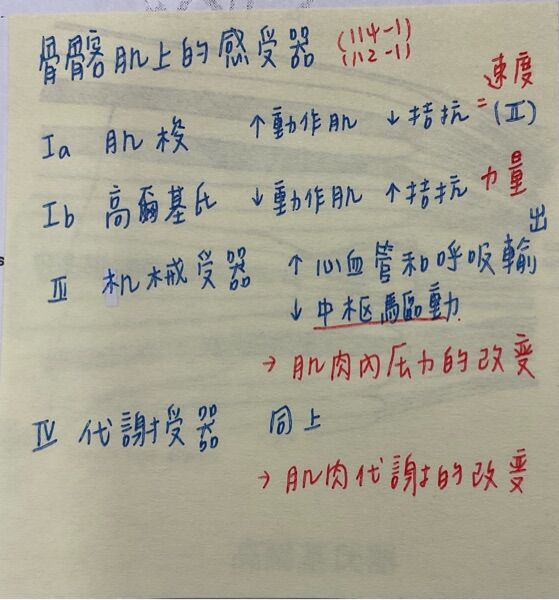 骨骼肌上的感受器 (114-1)
(112-1)
Ia 肌梭 ↑動作肌 ↓拮抗 = 速度
(II)
Ib 高爾基氏 ↓動作肌 ↑拮抗 力量
III 机械受器 ↑心血管和呼吸輸出
↓中枢驅動
→ 肌肉內压力的改变
IV 代謝受器 同上
→ 肌肉代謝的改变